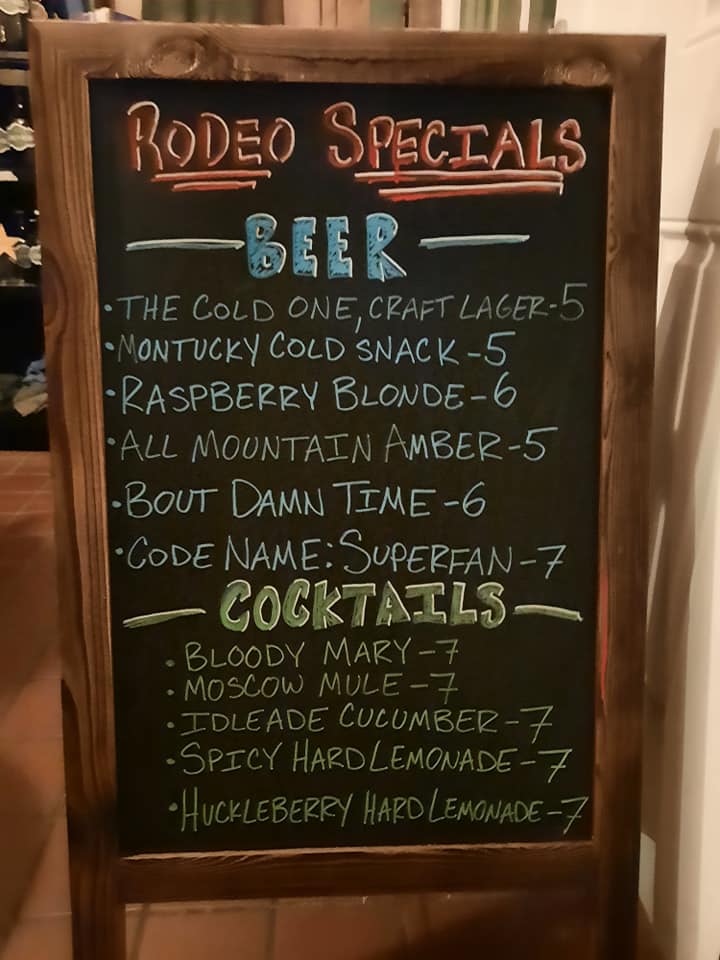 RODEO SPECIALS
BEER
• THE COLD ONE, CRAFT LAGER-5
• MONTUCKY COLD SNACK-5
• RASPBERRY BLONDE-6
• ALL MOUNTAIN AMBER-5
• BOUT DAMN TIME-6
• CODE NAME: SUPERFAN-7
COCKTAILS
• BLOODY MARY-7
• MOSCOW MULE-7
• IDLEADE CUCUMBER-7
• SPICY HARD LEMONADE-7
• HUCKLEBERRY HARD LEMONADE-7